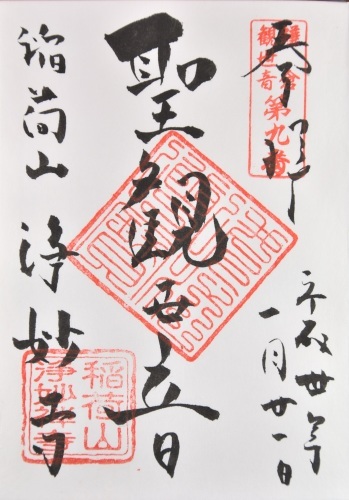 奉拝
鎌倉
観世音
第九番
平成丗年
一月廿一日
聖観世音
稲荷山 浄妙寺
稲荷山
浄妙禅寺